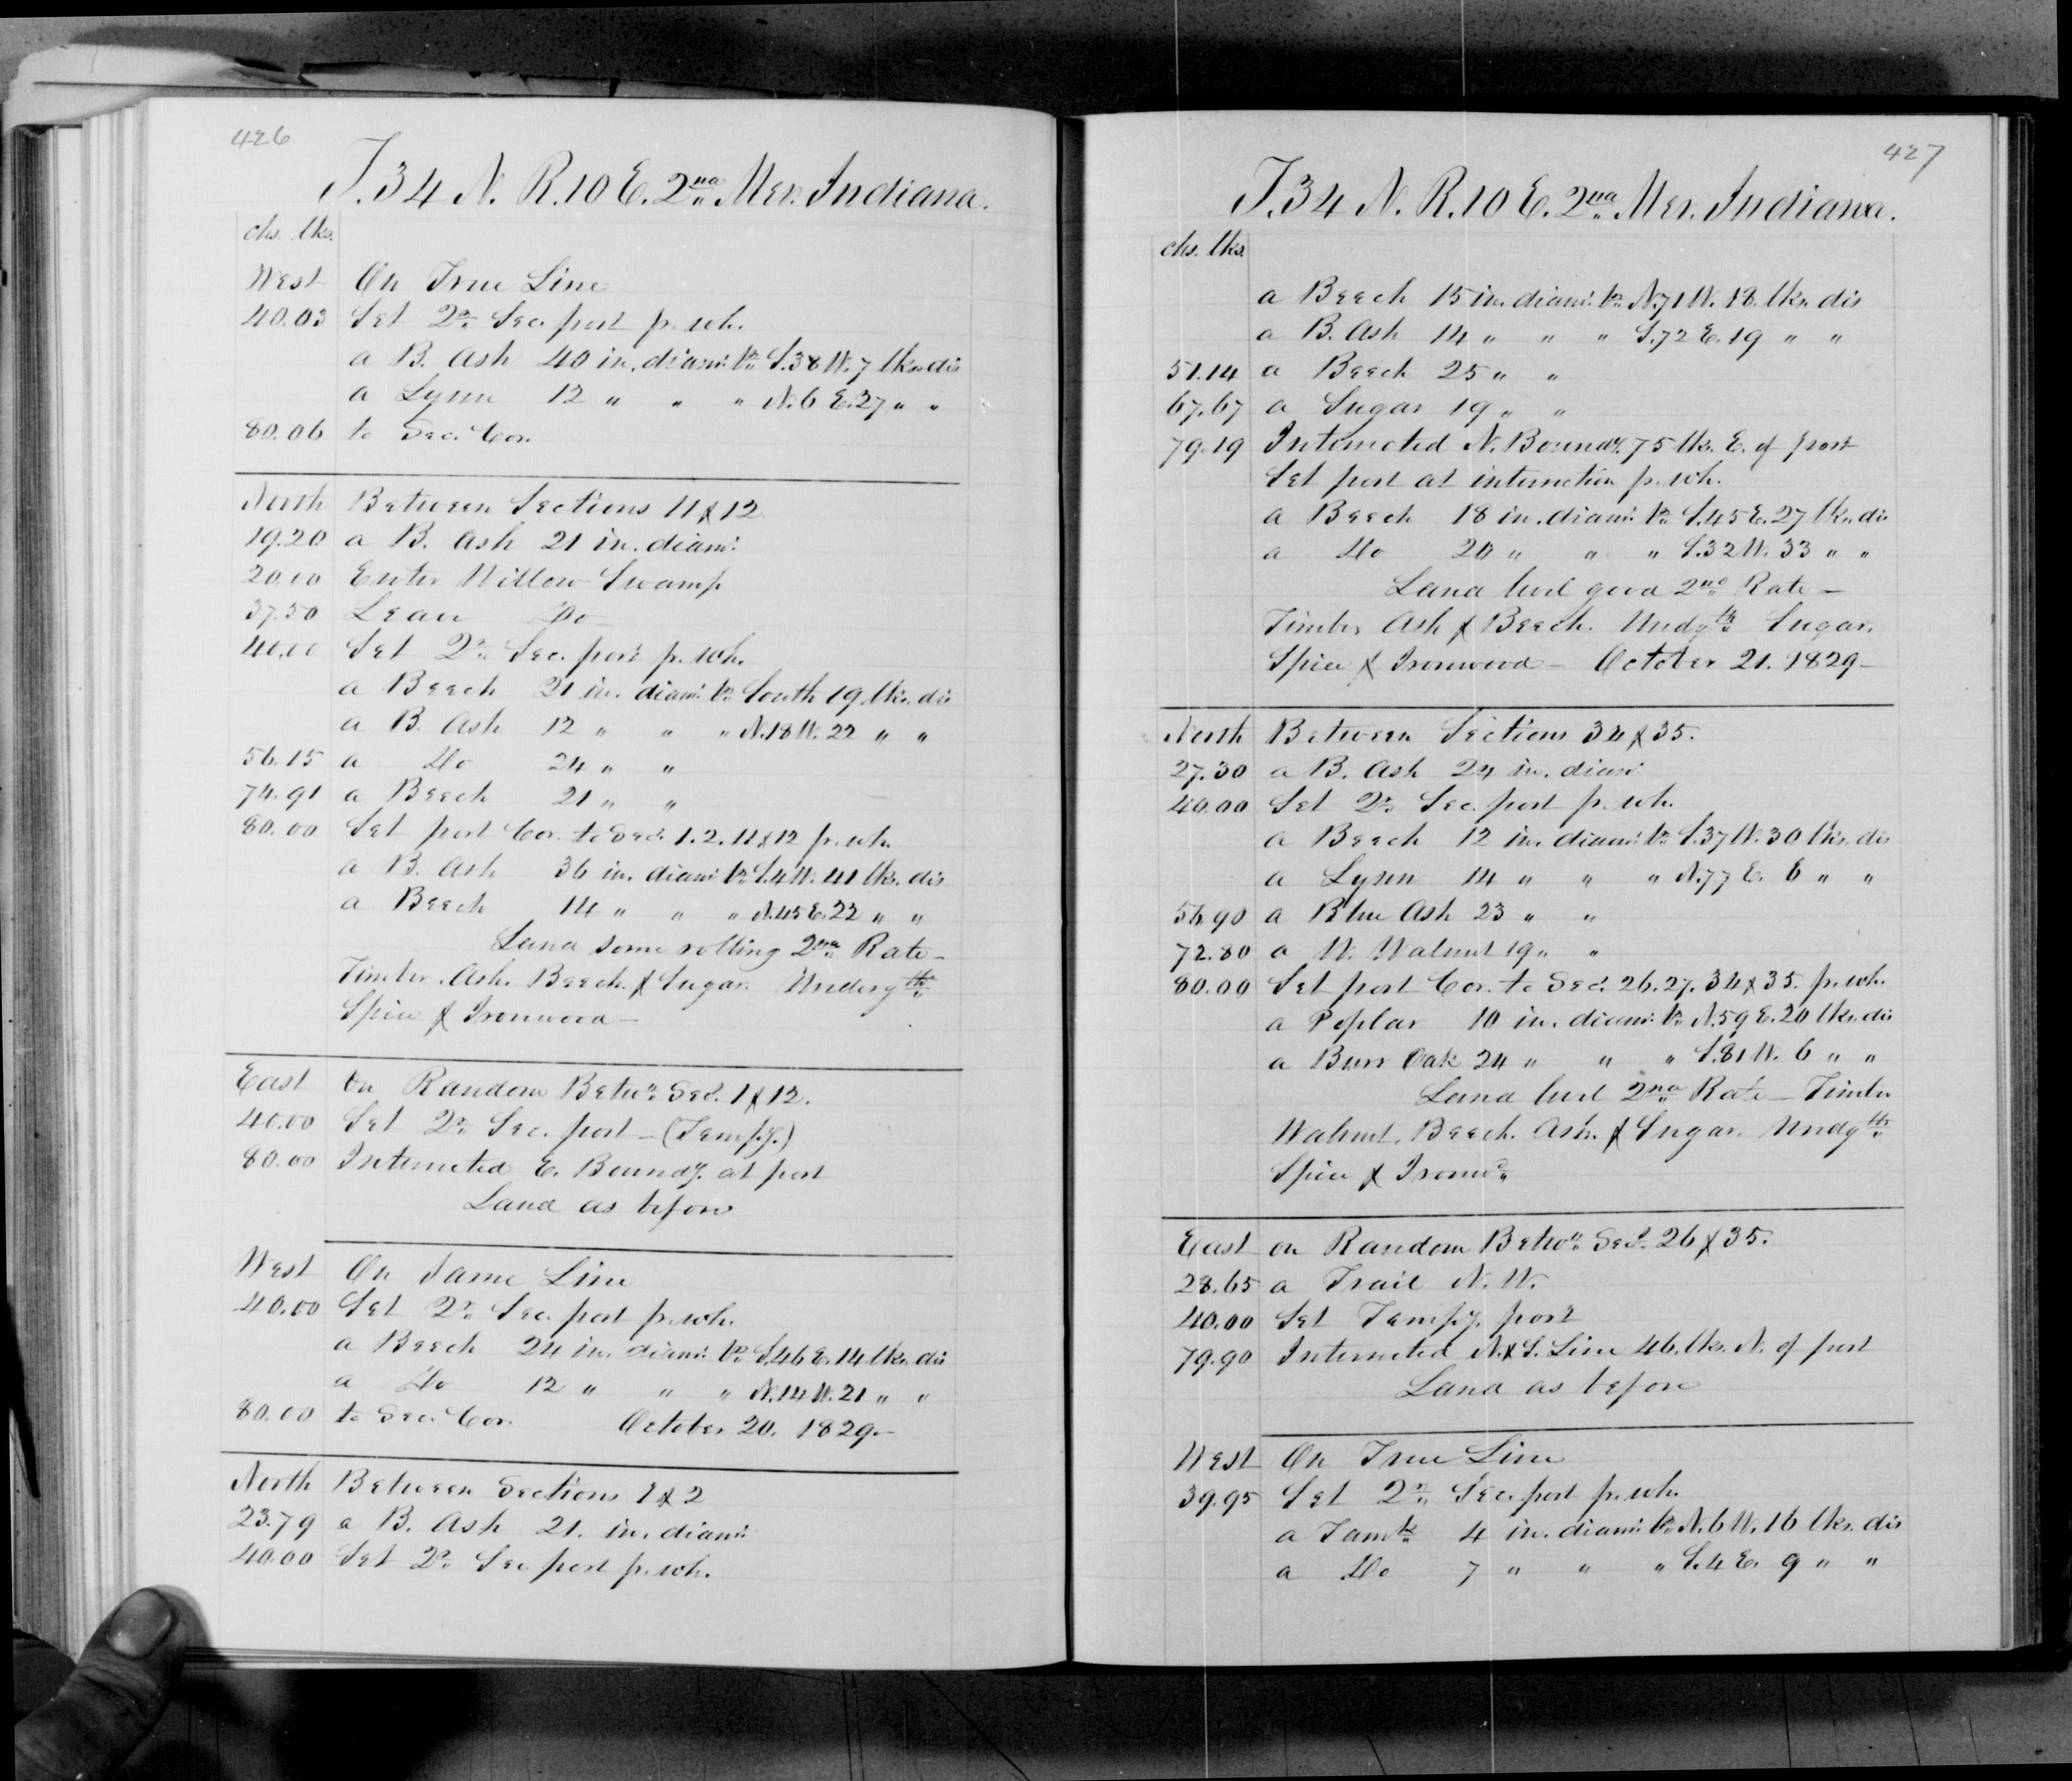 426
T.34 N. R.10 E. 2nd Mer. Indiana.
chs. lks.
West On True Line
40.03 Set Qr. Sec. post pr. wh.
a B. Ash 40 in. diam. br. S.38 W. 7 lks. dis
a Lynn 12 " " " N.6 E. 27 " "
80.06 to Sec. Cor.
North Between Sections 11 & 12
19.20 a B. Ash 21 in. diam.
20.00 Enter Willow Swamp
37.50 Leave Do
40.00 Set Qr. Sec. post pr. wh.
a Beech 21 in. diam. br. South 19 lks. dis
a B. Ash 12 " " " N.18 W. 22 " "
56.15 a Do 24 " "
74.91 a Beech 21 " "
80.00 Set post Cor. to Sec. 1.2.11 & 12 pr. wh.
a B. Ash 36 in. diam. br. S.4 W. 41 lks. dis
a Beech 14 " " " N.45 E. 22 " "
Land some rolling 2nd Rate -
Timber. Ash. Beech. & Sugar. Undergth.
Spice & Ironwood -
East on Random Betwn. Sec. 1 & 12.
40.00 Set Qr. Sec. post - (Tempy.)
80.00 Intersected E. Boundy. at post
Land as before
West On Same Line
40.00 Set Qr. Sec. post pr. wh.
a Beech 24 in. diam. br. S.46 E. 14 lks. dis
a Do 12 " " " N.14 W. 21 " "
80.00 to Sec. Cor. October 20. 1829. -
North Between Sections 1 & 2
23.79 a B. Ash 21. in. diam.
40.00 Set Qr. Sec. post pr. wh.
427
T.34 N. R.10 E. 2nd Mer. Indiana.
chs. lks.
a Beech 15 in. diam. br. N.71 W. 18 lks. dis
a B. Ash 14 " " " S.72 E. 19 " "
51.14 a Beech 25 " "
67.67 a Sugar 19 " "
79.19 Intersected N. Boundy. 75 lks. E. of post
Set post at intersection pr. wh.
a Beech 18 in. diam. br. S.45 E. 27 lks. dis
a Do 20 " " " S.32 W. 33 " "
Land level good 2nd Rate -
Timber Ash & Beech. Undgth. Sugar.
Spice & Ironwood - October 21. 1829 -
North Between Sections 34 & 35.
27.30 a B. Ash 24 in. diam.
40.00 Set Qr. Sec. post pr. wh.
a Beech 12 in. diam. br. S.37 W. 30 lks. dis
a Lynn 14 " " " N.77 E. 6 " "
56.90 a Blue Ash 23 " "
72.80 a W. Walnut 19 " "
80.00 Set post Cor. to Sec. 26.27.34 & 35. pr. wh.
a Poplar 10 in. diam. br. N.59 E. 20 lks. dis
a Burr Oak 24 " " " S.81 W. 6 " "
Land level 2nd Rate - Timber
Walnut. Beech. Ash. & Sugar. Undgth.
Spice & Ironwd.
East on Random Betwn. Sec. 26 & 35.
28.65 a Trail N.W.
40.00 Set Tempy. post
79.90 Intersected N. & S. Line 46 lks. N. of post
Land as before
West On True Line
39.95 Set Qr. Sec. post pr. wh.
a Tamk. 4 in. diam. br. N.6 W. 16 lks. dis
a Do 7 " " " S.4 E. 9 " "